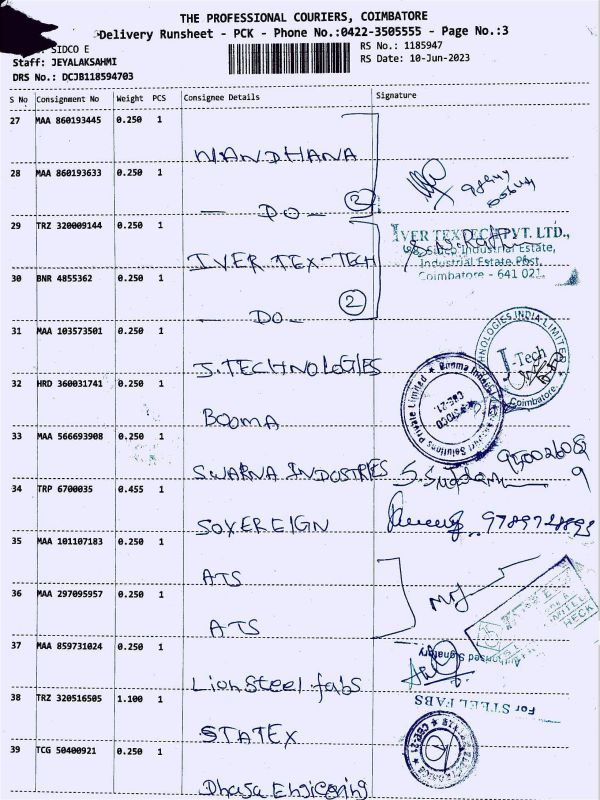 THE PROFESSIONAL COURIERS, COIMBATORE
Delivery Runsheet - PCK - Phone No.:0422-3505555 - Page No.:3
SIDCO E
RS No.: 1185947
Staff: JEYALAKSAHMI
RS Date: 10-Jun-2023
DRS No.: DCJB118594703
S No Consignment No Weight PCS Consignee Details Signature
27 MAA 860193445 0.250 1
NANDHANA
28 MAA 860193633 0.250 1
— DO — 2
29 TRZ 320009144 0.250 1
IVER TEX-TECH
IVER TEXTECH PVT. LTD.,
Industrial Estate,
Industrial Estate Post,
Coimbatore - 641 021.
30 BNR 4855362 0.250 1
— DO — 2
31 MAA 103573501 0.250 1
J.TECHNOLOGIES
J-Tech
Coimbatore.
32 HRD 360031741 0.250 1
BOOMA
33 MAA 566693908 0.250 1
SWARNA INDUSTRIES
34 TRP 6700035 0.455 1
SOVEREIGN
35 MAA 101107183 0.250 1
ATS
36 MAA 297095957 0.250 1
ATS
37 MAA 859731024 0.250 1
Lion Steel fabs
Authorised Signatory
For STEEL FABS
38 TRZ 320516505 1.100 1
STATEX
39 TCG 50400921 0.250 1